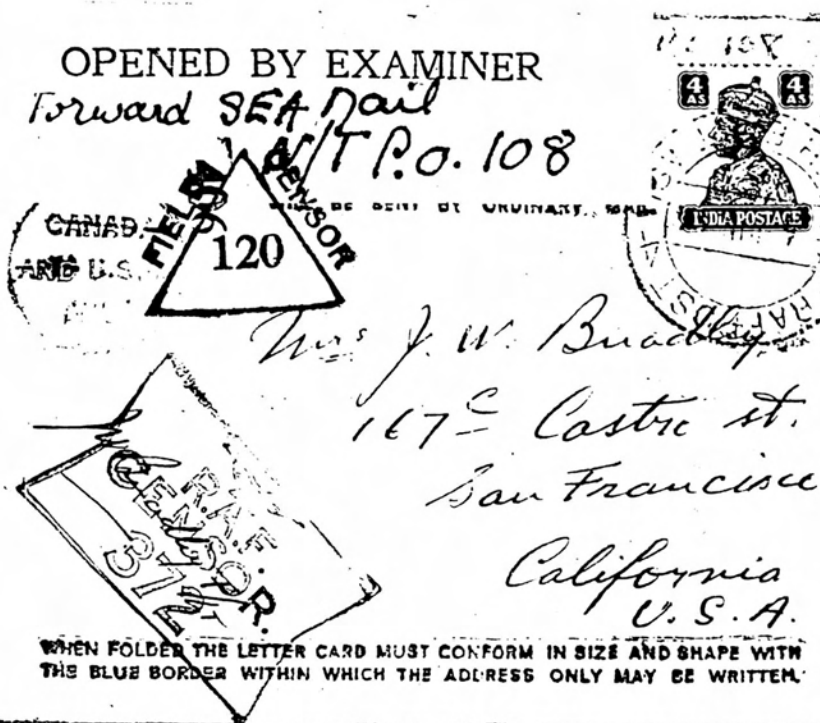 OPENED BY EXAMINER
Forward SEA Mail
N/T P.O. 108
4 AS 4 AS
INDIA POSTAGE
BE SENT BY ORDINARY
CANAD.
AND U.S.
CENSOR
120
Mrs J. W. Bradley
Castro st.
San Francisco
California
U. S. A.
R.A.F.
CENSOR.
372
WHEN FOLDED THE LETTER CARD MUST CONFORM IN SIZE AND SHAPE WITH
THE BLUE BORDER WITHIN WHICH THE ADDRESS ONLY MAY BE WRITTEN.